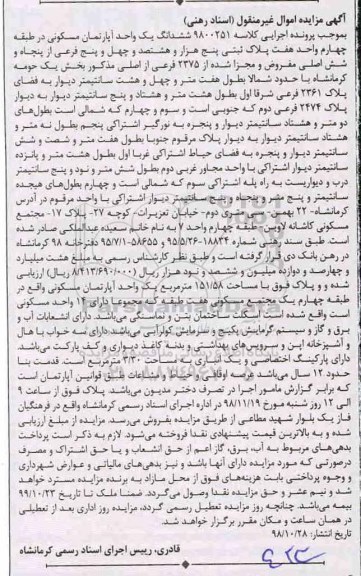 آگهی مزایده اموال غیرمنقول (اسناد رهنی)
بموجب پرونده اجرایی کلاسه ۹۸۰۰۲۵۱ ششدانگ یک واحد آپارتمان مسکونی در طبقه
چهارم واحد هفت پلاک ثبتی پنج هزار و هشتصد و چهل و پنج فرعی از پنجاه و
شش اصلی مفروض و مجزا شده از ۲۳۷۵ فرعی از اصلی مذکور بخش یک حومه
کرمانشاه با حدود شمالا بطول هفت متر و چهل و هشت سانتیمتر دیوار به فضای
پلاک ۲۳۶۱ فرعی شرقا اول بطول هشت متر و هشتاد و پنج سانتیمتر دیوار به دیوار
پلاک ۲۴۷۴ فرعی دوم که جنوبی است و سوم و چهارم که شمالی است بطول‌های
دو متر و هشتاد سانتیمتر دیوار و پنجره به نورگیر اشتراکی پنجم بطول نه متر و
هشتاد سانتیمتر دیوار به دیوار پلاک مرقوم جنوبا بطول هفت متر و شصت و شش
سانتیمتر دیوار و پنجره به فضای حیاط اشتراکی غربا اول بطول هشت متر و پانزده
سانتیمتر دیوار اشتراکی با واحد مجاور غربی دوم بطول شش متر و نود و پنج سانتیمتر
درب و دیواریست به راه پله اشتراکی سوم که شمالی است و چهارم بطول‌های هیجده
سانتیمتر و پنج متر و پنجاه و پنج سانتیمتر دیوار اشتراکی با واحد مرقوم در آدرس
کرمانشاه- ۲۲ بهمن- دوم- خیابان تعزیرات- کوچه ۲۷- پلاک ۱۷- مجتمع
مسکونی کاشانه لاوین- طبقه چهارم واحد ۷ به نام خانم سعیده عبدالملکی صادر شده
است. طبق سند رهنی شماره ۱۸۸۳۴-۹۵/۵/۲۶ و ۵۸۶۵۵-۹۵/۷/۱ دفترخانه ۹۸ کرمانشاه
در رهن بانک دی قرار گرفته است و طبق نظر کارشناس رسمی به مبلغ هشت میلیارد
و چهارصد و دوازده میلیون و ششصد و نود هزار ریال (۸/۴۱۳/۶۹۰/۰۰۰ ریال) ارزیابی
شده و و پلاک فوق با مساحت ۱۵۱/۵۸ مترمربع یک واحد آپارتمان مسکونی واقع در
طبقه چهارم یک مجتمع مسکونی هفت طبقه که مجموعا دارای ۱۴ واحد مسکونی
است واقع شده است. اسکلت ساختمان بتن و نما آجرنما می‌باشد. دارای انشعابات آب و
برق و گاز و سیستم گرمایش پکیج و سرمایش کولر آبی می‌باشد. دارای سه خواب با هال
و آشپزخانه اپن و سرویس‌های بهداشتی و بدنه کاغذ دیواری و کف پارکت می‌باشد.
دارای پارکینگ اختصاصی و یک انباری به مساحت ۳۳۰ مترمربع است. قدمت بنا
حدود ۱۲ سال می‌باشد عرصه اوقافی و حیاط و مشاعات طبق قوانین آپارتمان است
که برابر گزارش مامور اجرا در تصرف دختر مدیون می‌باشد. پلاک فوق از ساعت ۹
الی ۱۲ روز شنبه مورخ ۹۸/۱۱/۱۹ در اداره اجرای اسناد رسمی کرمانشاه واقع در فرهنگیان
فاز یک بلوار شهید مطاعی از طریق مزایده بفروش می‌رسد. مزایده از مبلغ ارزیابی
شده و به بالاترین قیمت پیشنهادی نقدا فروخته می‌شود. لازم به ذکر است پرداخت
بدهی‌های مربوط به آب، برق، گاز اعم از حق انشعاب و یا حق اشتراک و مصرف
درصورتی که مورد مزایده دارای آنها باشد و نیز بدهی‌های مالیاتی و عوارض شهرداری
و وجوه پرداختی بابت هزینه‌های فوق از محل مازاد به برنده مزایده مسترد خواهد
شد و نیم عشر و حق مزایده نقدا وصول می‌گردد. ضمنا ملک تا تاریخ ۹۹/۱۰/۲۳
بیمه می‌باشد. چنانچه روز مزایده تعطیل رسمی گردد، مزایده روز اداری بعد از تعطیلی
در همان ساعت و مکان مقرر برگزار خواهد شد.
تاریخ انتشار: ۹۸/۱۰/۲۸
قادری، رییس اجرای اسناد رسمی کرمانشاه